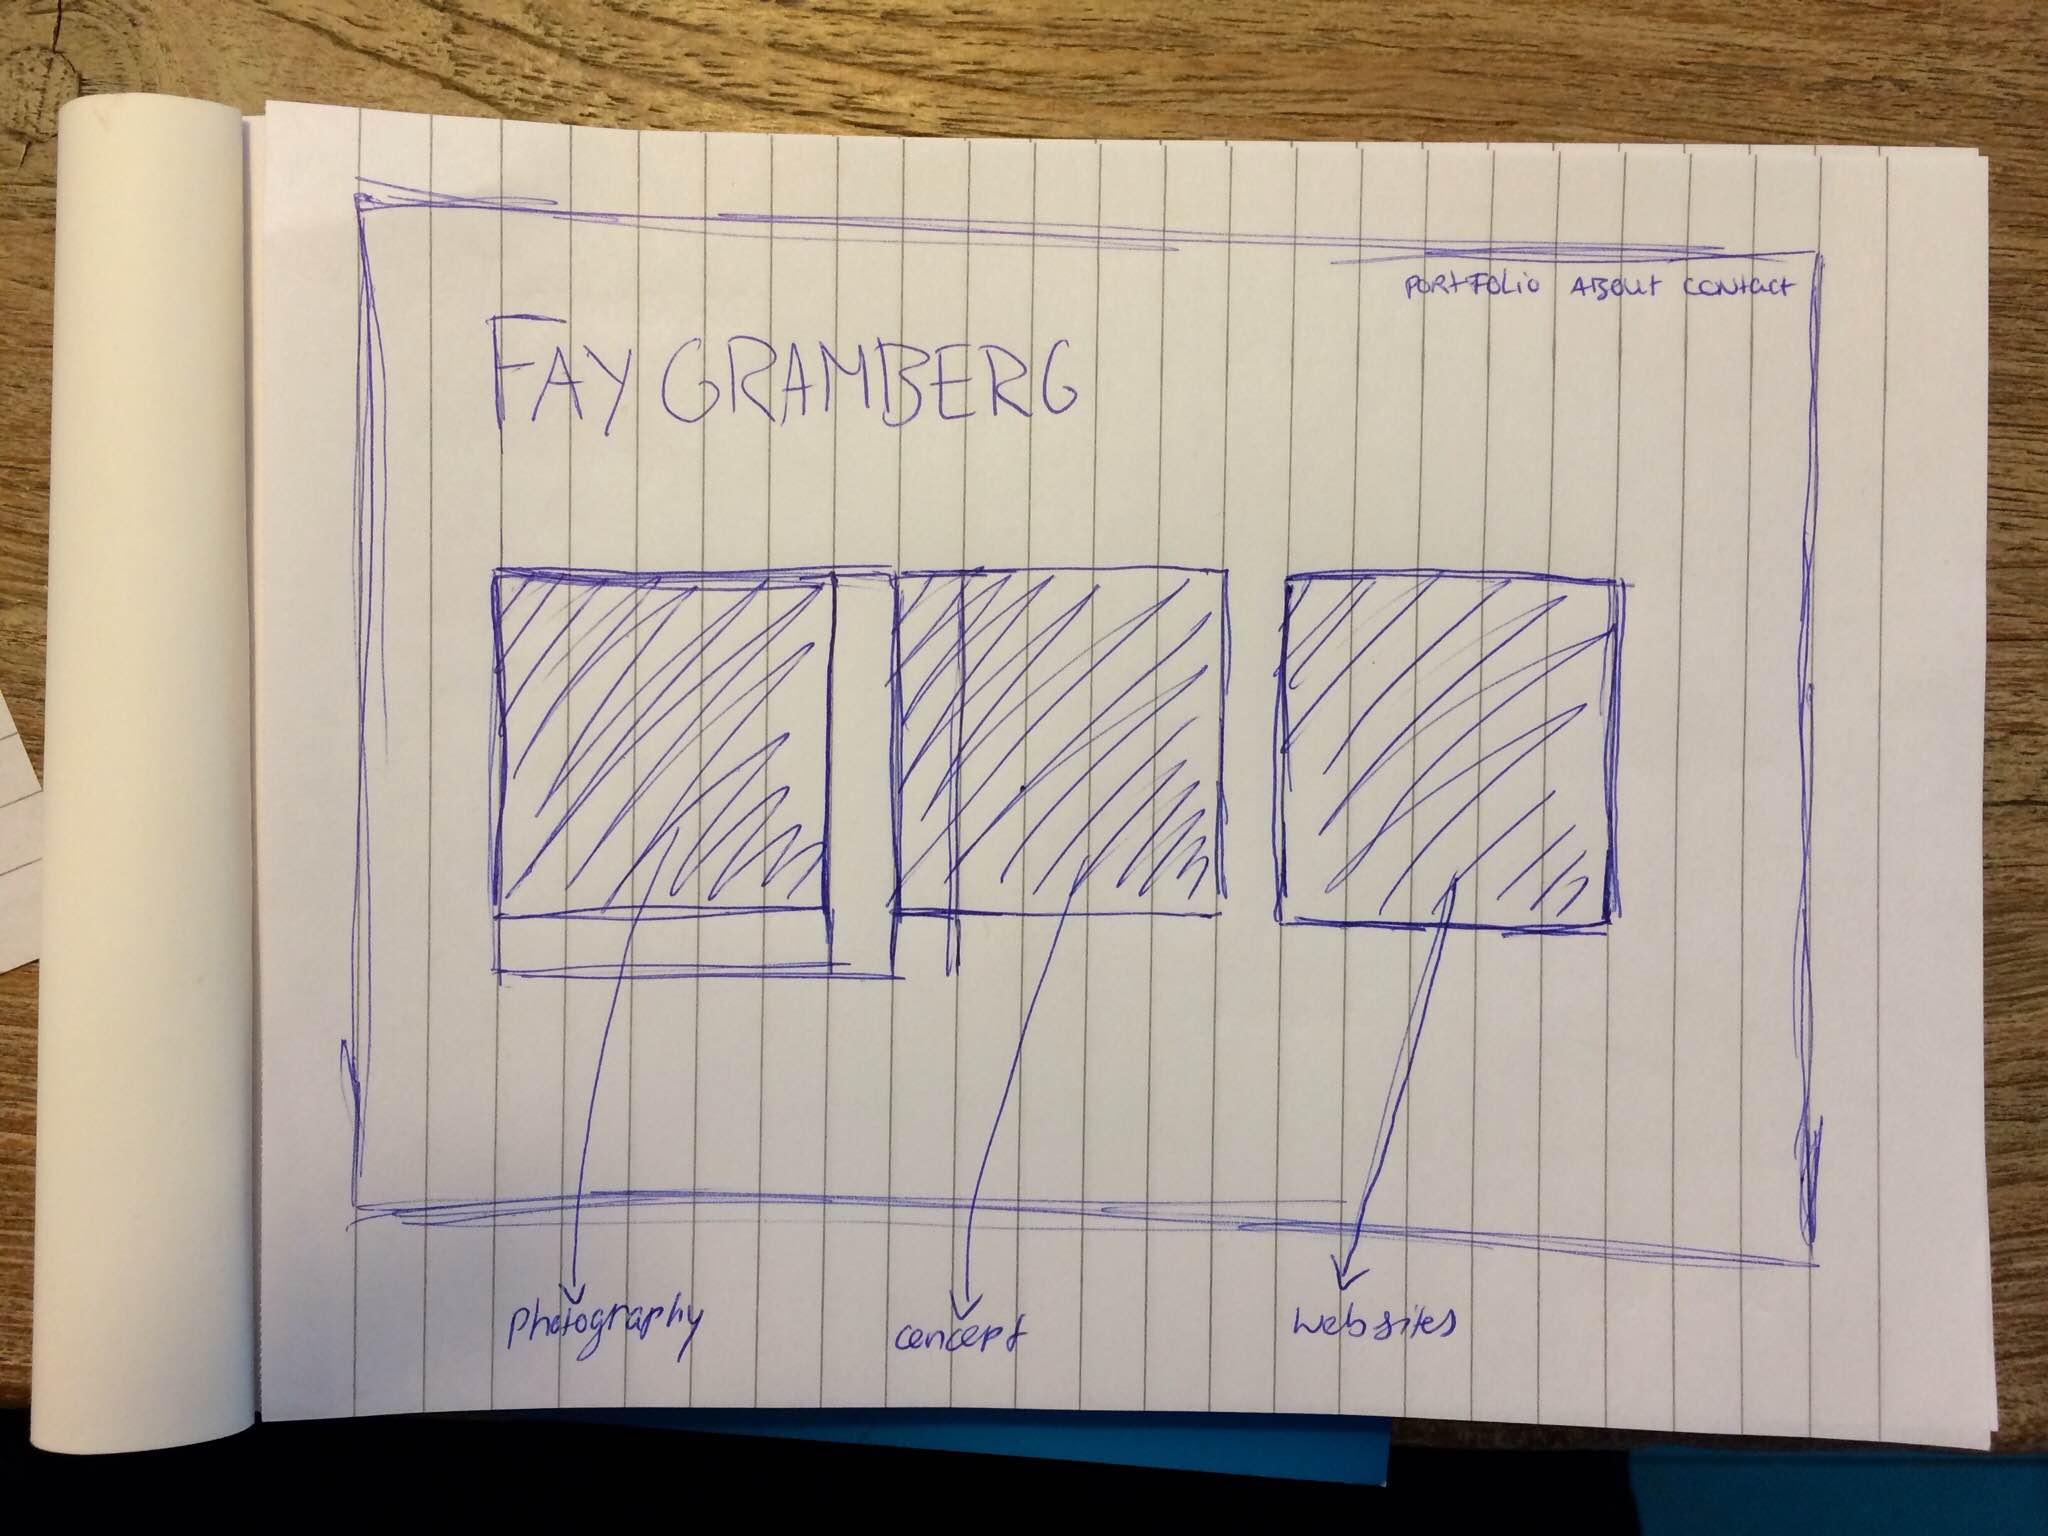 PORTFOLIO ABOUT CONTACT
FAY GRAMBERG
photography concept websites